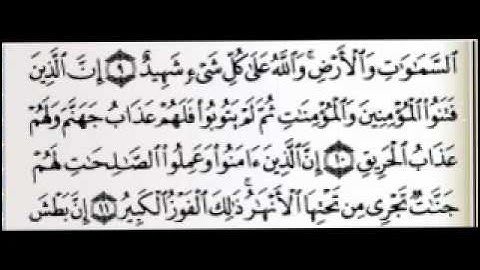 ٱلسَّمَٰوَٰتِ وَٱلْأَرْضِ ۚ وَٱللَّهُ عَلَىٰ كُلِّ شَىْءٍ شَهِيدٌ ٩ إِنَّ ٱلَّذِينَ
فَتَنُوا۟ ٱلْمُؤْمِنِينَ وَٱلْمُؤْمِنَٰتِ ثُمَّ لَمْ يَتُوبُوا۟ فَلَهُمْ عَذَابُ جَهَنَّمَ وَلَهُمْ
عَذَابُ ٱلْحَرِيقِ ١٠ إِنَّ ٱلَّذِينَ ءَامَنُوا۟ وَعَمِلُوا۟ ٱلصَّٰلِحَٰتِ لَهُمْ
جَنَّٰتٌ تَجْرِى مِن تَحْتِهَا ٱلْأَنْهَٰرُ ۚ ذَٰلِكَ ٱلْفَوْزُ ٱلْكَبِيرُ ١١ إِنَّ بَطْشَ